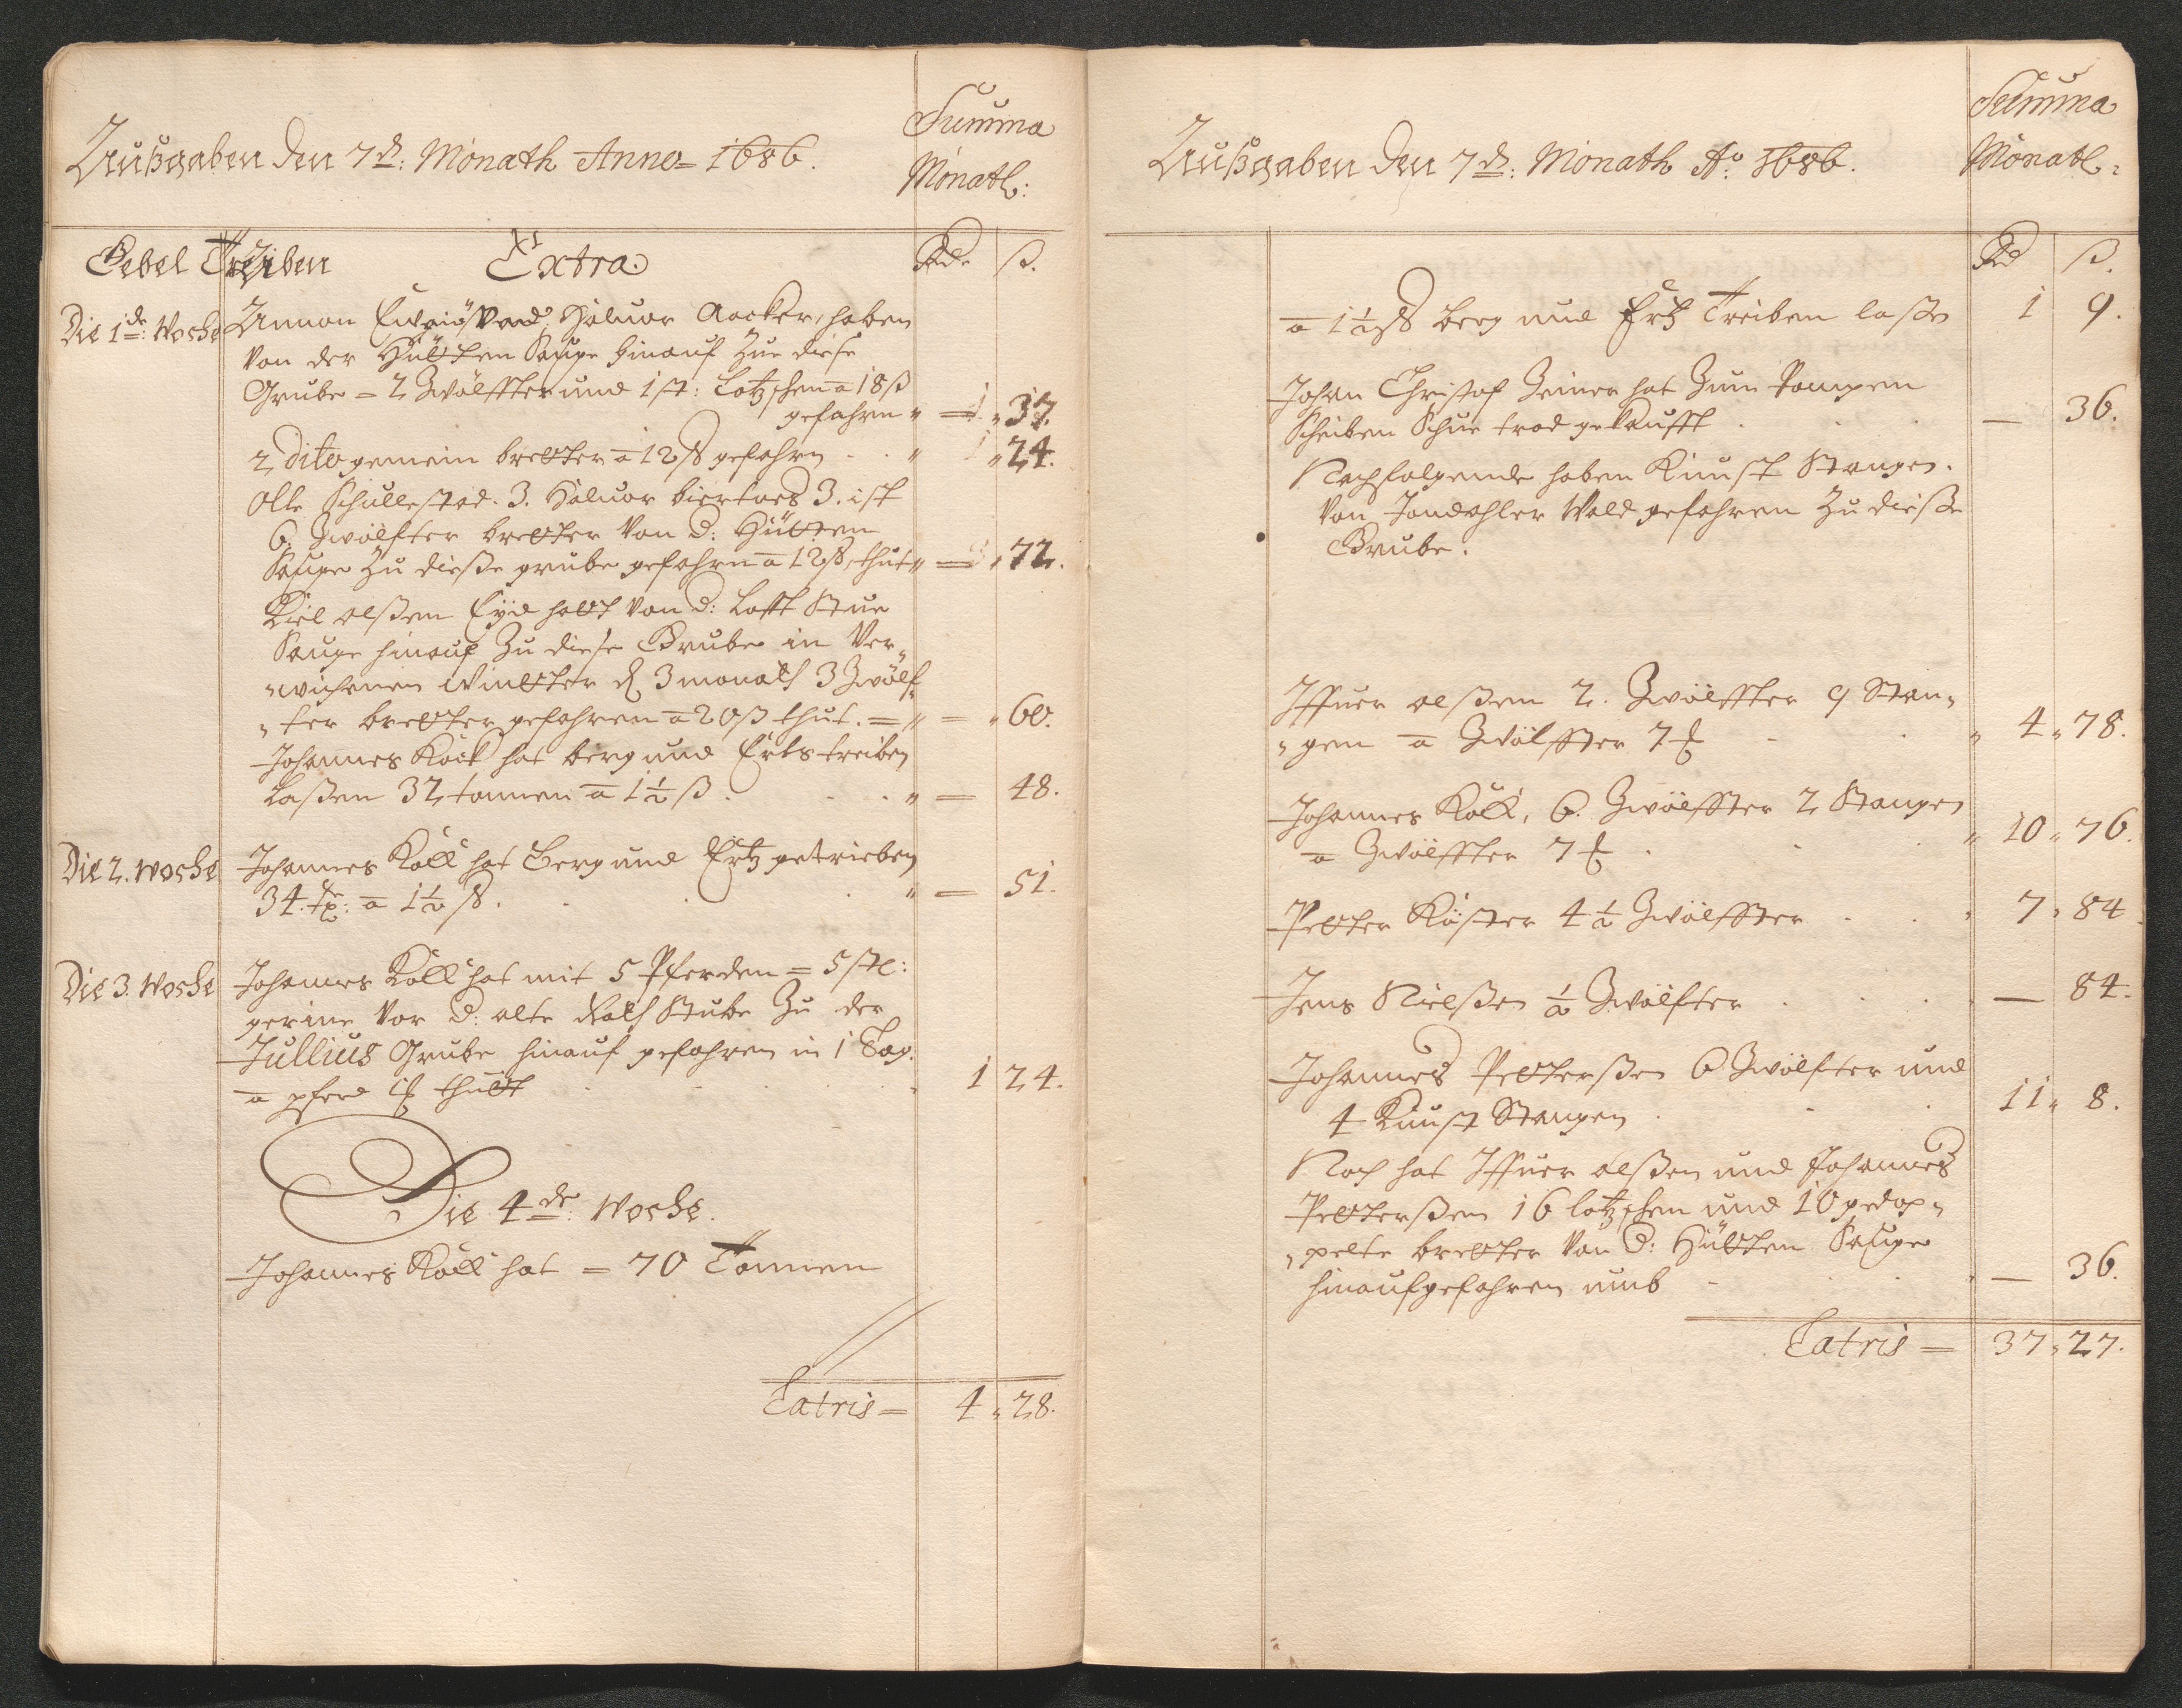 Außgaben den 7d: Monath Anno= 1686.
Summa
Monatl:
Gebel Treiben
Extra.
Rd. ß.
Die 1de: Woche
Halvor Aacker, haben
Von der Hütten Sauge hinauf Zue diese
Grube = 2 Zwölffter und 1 st: Lotzschen a 18 ß
gefahren " = 1 " 37.
2 dito gemein bretter a 12 ß gefahrn . . " " 24.
Olle Schullestad. 3. Halvor 3. ist
6. Zwölfter bretter Von d: Hütten
Sauge Zu dieße grube gefahrn a 12 ß, thut " = " 72.
Kiel olßen Eyd halt Von d:
Sauge hinauf Zu diese Grube in Ver„
„wichenen Wintter d 3 monath 3 Zwölf„
„ter bretter gefahren a 20 ß thut. = " = " 60.
Johannes Koll hat berg und Erts treiben
Laßen 32 tonnen a 1½ ß . . . " = 48.
Die 2. woche
Johannes Koll hat Berg und Ertz getrieben
34. tn: a 1½ ß. . . . " = 51.
Die 3. Woche
Johannes Koll hat mit 5 Pferden = 5 stl:
gerine Vor d. alte Rath Stube Zu der
Jullius Grube hinauf gefahren in 1 Tag.
a pferd thutt . . . . 1 24.
Die 4de: Woche.
Johannes Koll hat = 70 Tonnen
Latris = 4 " 28.
Außgaben den 7d: Monath Ao: 1686.
Summa
Monatl:
Rd ß.
a 1½ ß berg und Ertz Treiben laßen 1 9.
Johan Christof Zeiner hat Zum Pompen
Scheiben gekaufft . . . — 36.
Nachfolgende haben Kunst Stangen.
Von Wald gefahren Zu dieße
Grube.
Iffuer olßen 2. Zwölffter 9 Stan„
„gen a Zwölffter 7 . . " 4 " 78.
Johannes Koll, 6. Zwölffter 2 Stangen
a Zwölffter 7 . . . " 10 " 76.
Petter Köster 4½ Zwölffter . . " 7 " 84
Jens Nielßen ½ Zwölfter . . . — 84.
Johannes Petterßen 6 Zwölfter und
4 Kunst Stangen . . . 11 " 8.
Noch hat Iffuer olßen und Johannes
Petterßen 16 lotzschen und 10 gedop„
„pelte bretter Von d: Hütten Sauge
hinaufgefahren umb . . . — 36.
Latris = 37 " 27.